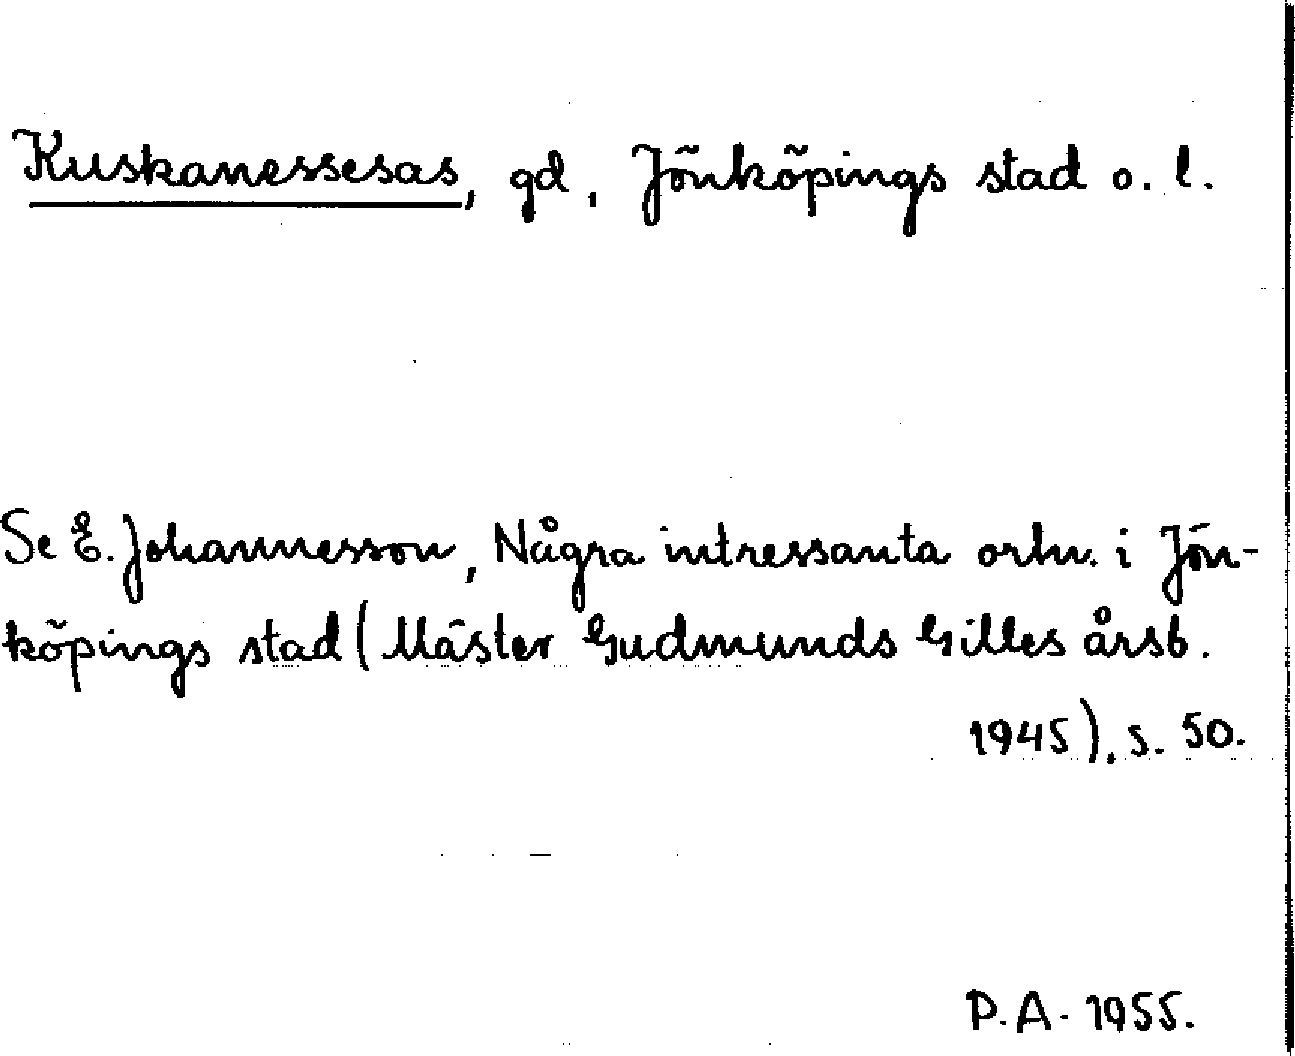 Kuskanessesas, gd, Jönköpings stad o. l.
Se E. Johannesson, Några intressanta ortn. i Jön-
köpings stad (Mäster Gudmunds Gilles årsb.
1945), s. 50.
P.A. 1955.